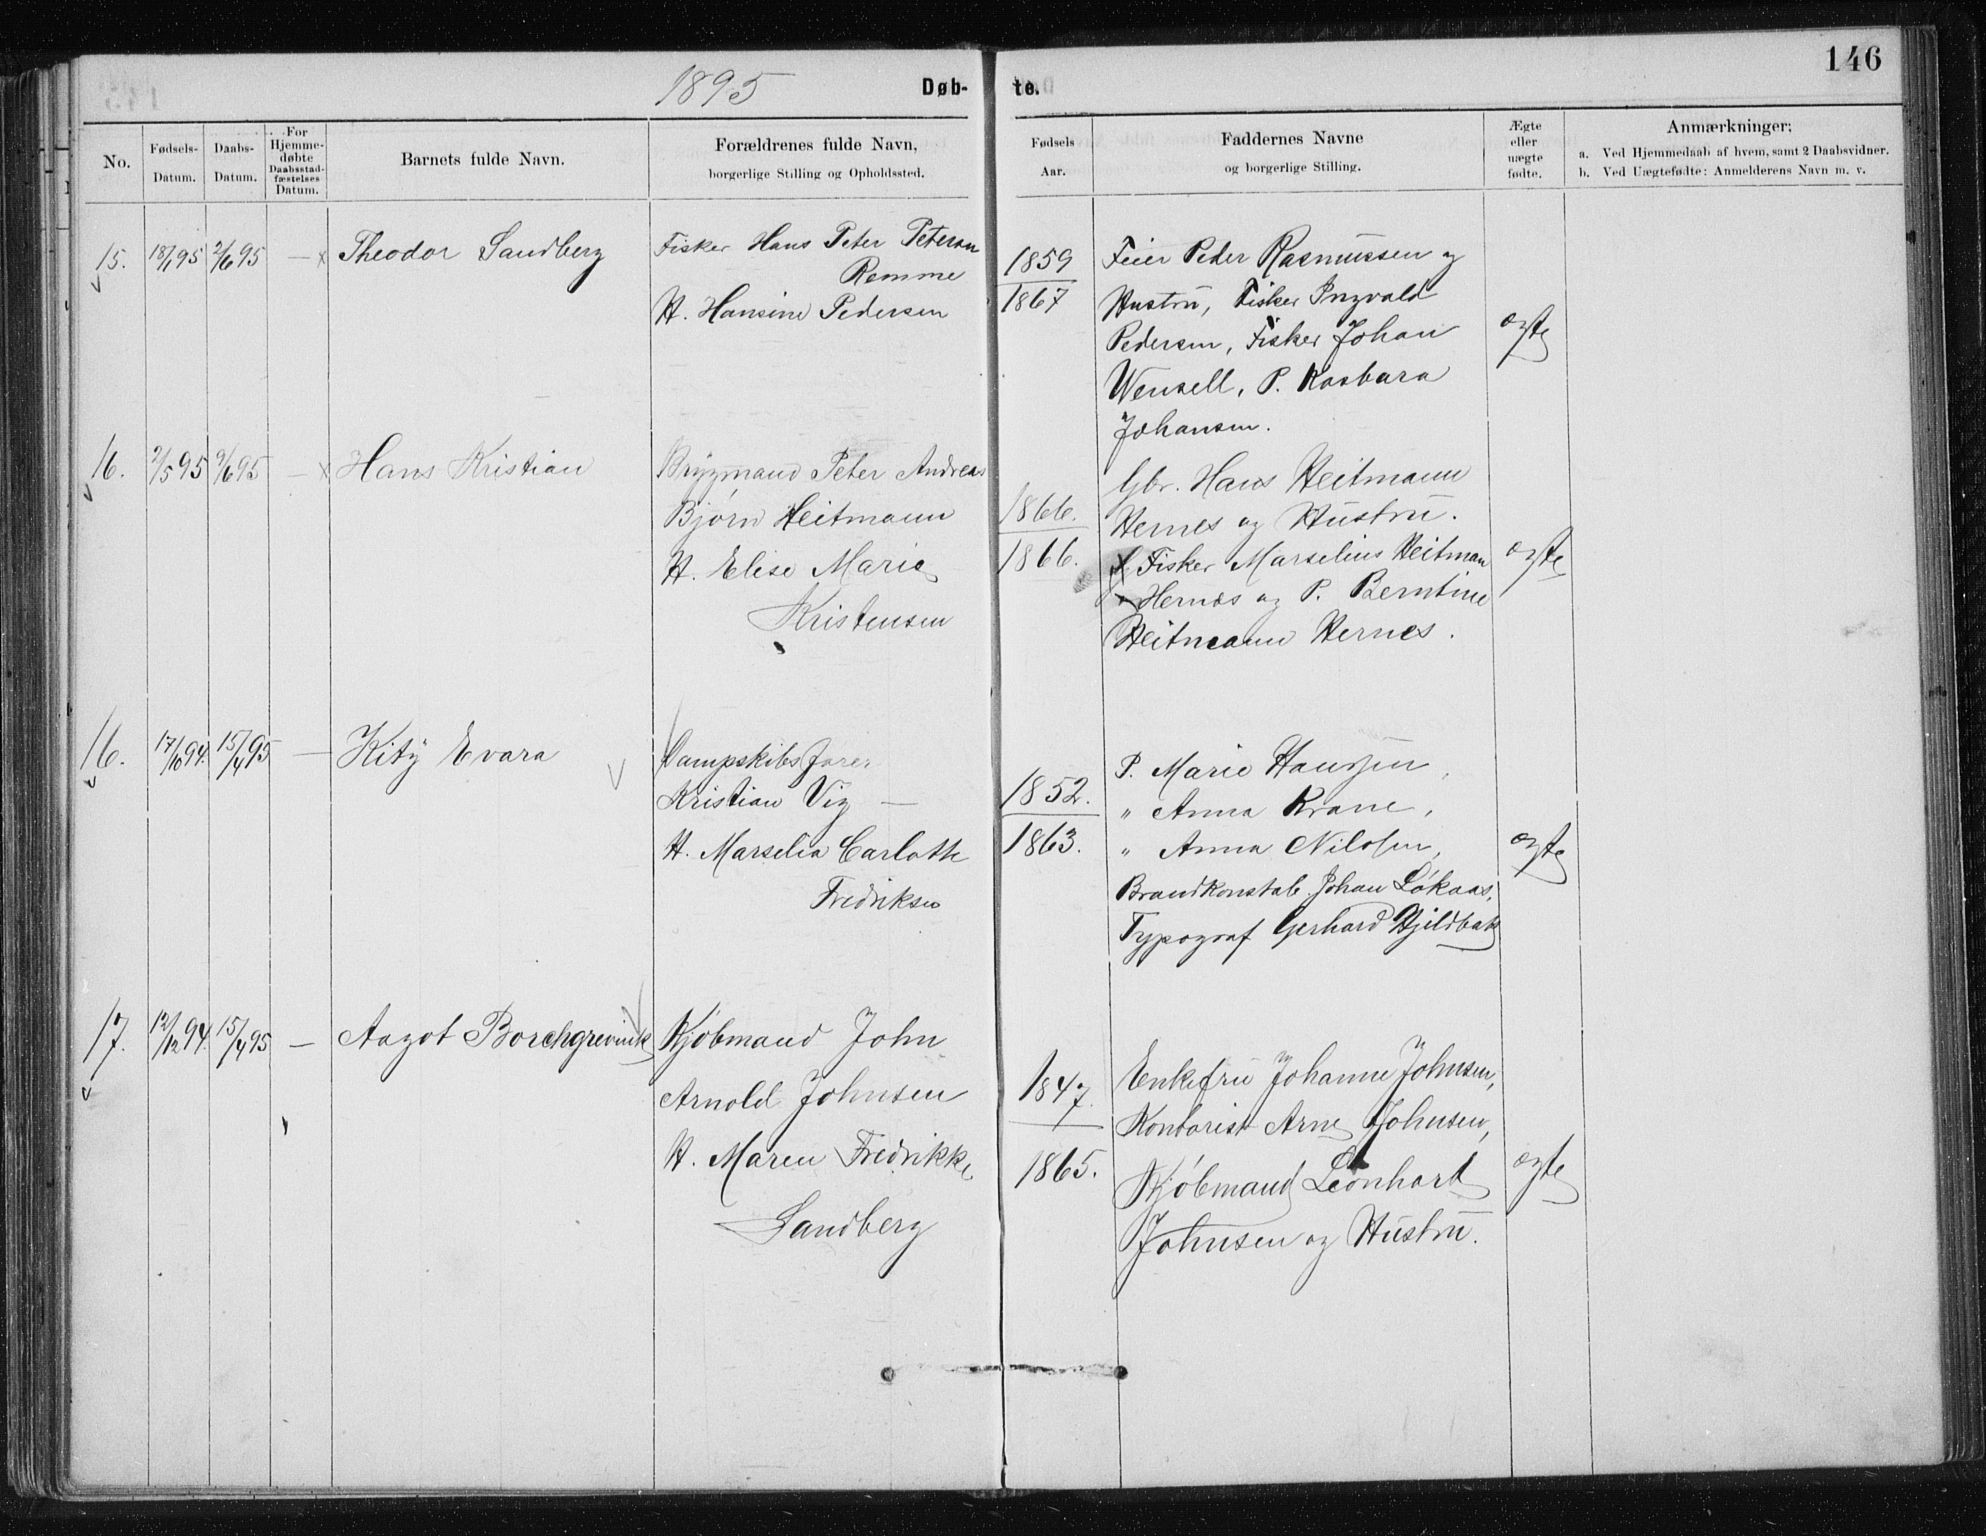 146
1895
Døb-
te.
No.
Fødsels-
Datum.
Daabs-
Datum.
For
Hjemme-
døbte
Daabsstad-
fæstelses
Datum.
Barnets fulde Navn.
Forældrenes fulde Navn,
borgerlige Stilling og Opholdssted.
Fødsels
Aar.
Faddernes Navne
og borgerlige Stilling.
Ægte
eller
uægte
fødte.
Anmærkninger:
a. Ved Hjemmedaab af hvem, samt 2 Daabsvidner.
b. Ved Uægtefødte: Anmelderens Navn m. v.
15. 18/1 95 2/6 95 — x Theodor Sandberg
Fisker Hans Peter Petersen
Remme
H. Hansine Pedersen
1859
1867
Feier Peder Rasmussen og
Hustru, Fisker Ingvald
Pedersen, Fisker Johan
Wensell, P. Kasbara
Johansen.
ægte
16. 2/5 95 9/6 95 — x Hans Kristian
Brygmand Peter Andreas
Bjørn Heitmann
H. Elise Marie
Kristensen
1866.
1866.
Gbr. Hans Heitmann
Hernes og Hustru.
Fisker Marselius Heitman
Hernes og P. Berntine
Heitmann Hernes.
ægte
16. 17/10 94. 15/4 95 — Kity Evara
Dampskibsfører
Kristian Vig —
H. Marselia Carlotte
Fredriksen
1852.
1863.
P. Marie Hansen,
" Anna Krane,
" Anna Nilssen,
Brandkonstab. Johan Løkaas,
Typograf Gerhard Hjildbak
ægte
17. 12/12 94. 15/4 95 — Aagot Borchgrevink
Kjøbmand John
Arnold Johnsen
H. Maren Fredrikke
Sandberg
1847.
1865.
Enkefru Johanne Johnsen,
Kontorist Arne Johnsen,
Kjøbmand Leonhart
Johnsen og Hustru.
ægte